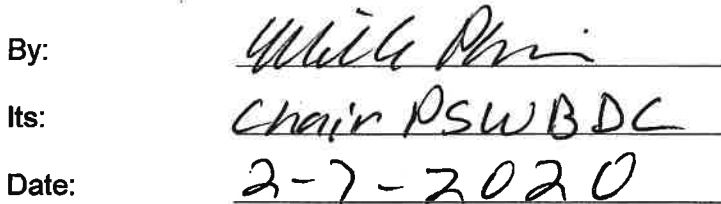 By:
Its: Chair PSWBDC
Date: 2-7-2020